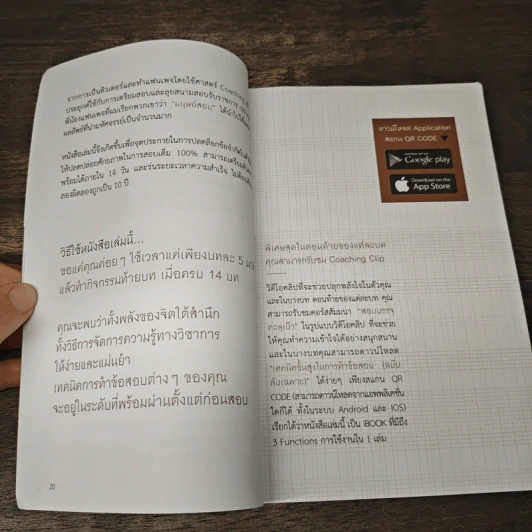 จากการเป็นติวเตอร์และทำแฟนเพจโดยใช้ศาสตร์ Coaching
ประยุกต์ใช้กับการเตรียมสอบและลุยสนามสอบรับราชการ
พี่น้องแฟนเพจที่ผมเรียกพวกเขาว่า "มนุษย์สอบ" ได้นำไปใช้
ผลลัพธ์ที่น่ามหัศจรรย์เป็นจำนวนมาก
หนังสือเล่มนี้จึงเกิดขึ้นเพื่อจุดประกายในการปลดล็อกข้อจำกัด
ให้ปลดปล่อยศักยภาพในการสอบเต็ม 100% สามารถเตรียมตัว
พร้อมได้ภายใน 14 วัน และร่นระยะเวลาความสำเร็จ ไม่ต้อง
ลองผิดลองถูกเป็น 10 ปี
วิธีใช้หนังสือเล่มนี้...
ขอแค่คุณค่อยๆ ใช้เวลาแค่เพียงบทละ 5 นาที
แล้วทำกิจกรรมท้ายบท เมื่อครบ 14 บท
คุณจะพบว่าทั้งพลังของจิตใต้สำนึก
ทั้งวิธีการจัดการความรู้ทางวิชาการ
ได้ง่ายและแม่นยำ
เทคนิคการทำข้อสอบต่างๆ ของคุณ
จะอยู่ในระดับที่พร้อมผ่านตั้งแต่ก่อนสอบ
20
ดาวน์โหลด Application
สแกน QR CODE
Google play
Download on the
App Store
พิเศษสุดในตอนท้ายของแต่ละบท
คุณสามารถรับชม Coaching Clip
วิดีโอคลิปที่จะช่วยปลุกพลังใจในตัวคุณ
และในบางบท ตอนท้ายของแต่ละบท คุณ
สามารถรับชมคอร์สสัมมนา "สอบบรรจุ
ทะลุเป้า" ในรูปแบบวิดีโอคลิป ที่จะช่วย
ให้คุณทำความเข้าใจได้อย่างสนุกสนาน
และในบางบทคุณสามารถดาวน์โหลด
"เทคนิคขั้นสูงในการทำข้อสอบ (ฉบับ
ลับเฉพาะ)" ได้ง่ายๆ เพียงสแกน QR
CODE (สามารถดาวน์โหลดจากแอพพลิเคชั่น
ใดก็ได้ ทั้งในระบบ Android และ IOS)
เรียกได้ว่าหนังสือเล่มนี้ เป็น iBOOK ที่มีถึง
3 Functions การใช้งานใน 1 เล่ม